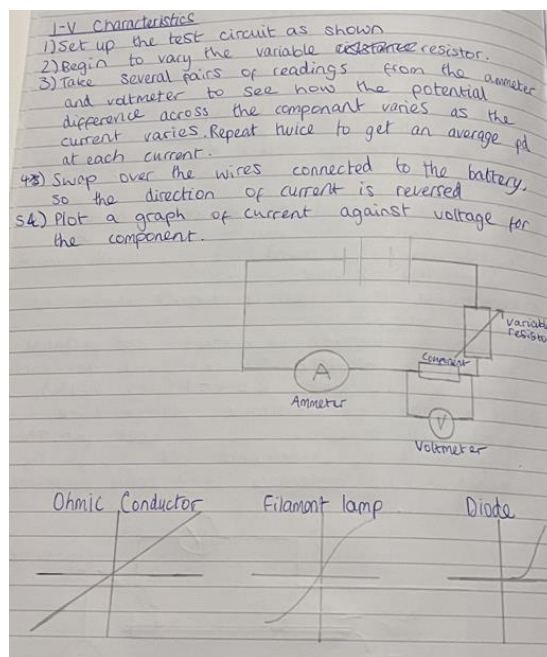 I-V Characteristics
1) Set up the test circuit as shown
2) Begin to vary the variable resistor.
3) Take several pairs of readings from the ammeter
and voltmeter to see how the potential
difference across the componant varies as the
current varies. Repeat twice to get an average pd
at each current.
4) Swap over the wires connected to the battery,
so the direction of current is reversed
5) Plot a graph of current against voltage for
the component.
variabl
resisto
Component
A
Ammeter
V
Voltmeter
Ohmic Conductor
Filament lamp
Diode